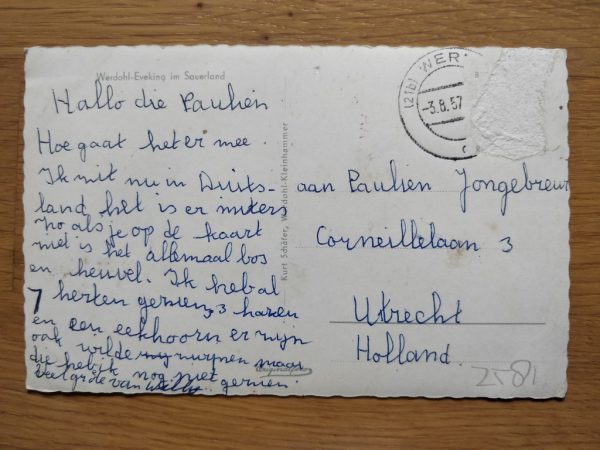 Werdohl-Eveking im Sauerland
Hallo die Paulien
Hoe gaat het er mee.
Ik zit nu in Duits-
land het is er
zo als je op de kaart
ziet is het allemaal bos
en heuvel. Ik heb al
7 herten gezien, 3 hazen
en een eekhoorn er zijn
ook wilde zwijnen maar
die heb ik nog niet gezien.
veel gr de van Willy
Kurt Schäfer, Werdohl-Kleinhammer
(21b) WER
-3.8.57
aan Paulien Jongebreur
Corneillelaan 3
Utrecht
Holland.
2581